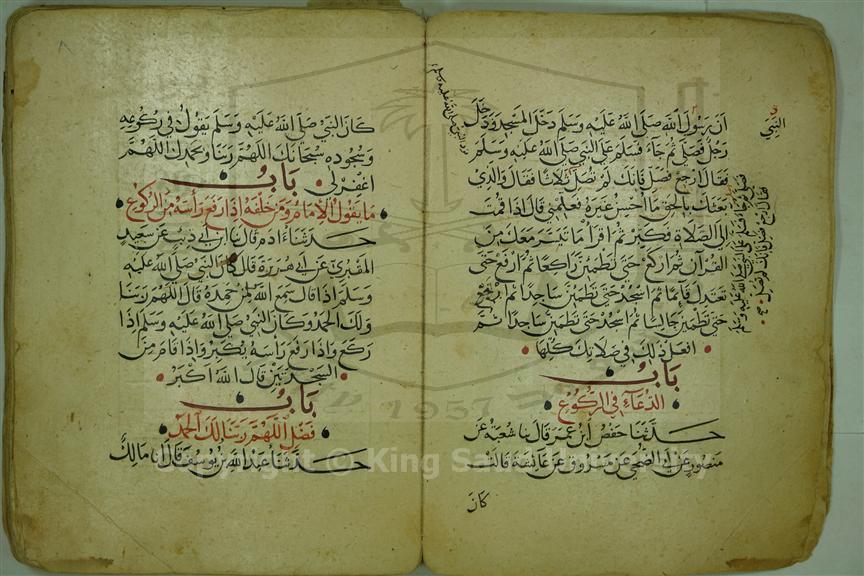 أن رسول الله صلى الله عليه وسلم دخل المسجد ودخل
رجل فصلى ثم جاء فسلم على النبي صلى الله عليه وسلم
فقال ارجع فصل فانك لم تصل ثلاثا فقال والذي
بعثك بالحق ما احسن غيره فعلمني قال اذا قمت
الى الصلاة فكبر ثم اقرأ ما تيسر معك من
القرآن ثم اركع حتى تطمئن راكعا ثم ارفع حتى
تعتدل قائما ثم اسجد حتى تطمئن ساجدا ثم ارفع
حتى تطمئن جالسا ثم اسجد حتى تطمئن ساجدا ثم
افعل ذلك في صلاتك كلها
باب
الدعاء في الركوع
حدثنا حفص ابن عمر قال نا شعبة عن
منصور عن أبي الضحى عن مسروق عن عائشة قالت
كان
النبي
فصلى ثم جاء فسلم على النبي صلى الله عليه وسلم
فقال ارجع فصل فانك لم تصل
كان النبي صلى الله عليه وسلم يقول في ركوعه
وسجوده سبحانك اللهم ربنا وبحمدك اللهم
اغفر لي باب
ما يقول الامام ومن خلفه اذا رفع رأسه من الركوع
حدثنا ادم قال نا ابن أبي ذئب عن سعيد
المقبري عن أبي هريرة قال كان النبي صلى الله عليه
وسلم اذا قال سمع الله لمن حمده قال اللهم ربنا
ولك الحمد وكان النبي صلى الله عليه وسلم اذا
ركع واذا رفع رأسه يكبر واذا قام من
السجدتين قال الله اكبر
باب
فضل اللهم ربنا لك الحمد
حدثنا عبد الله بن يوسف قال انا مالك
1957
Copyright © King Saud University